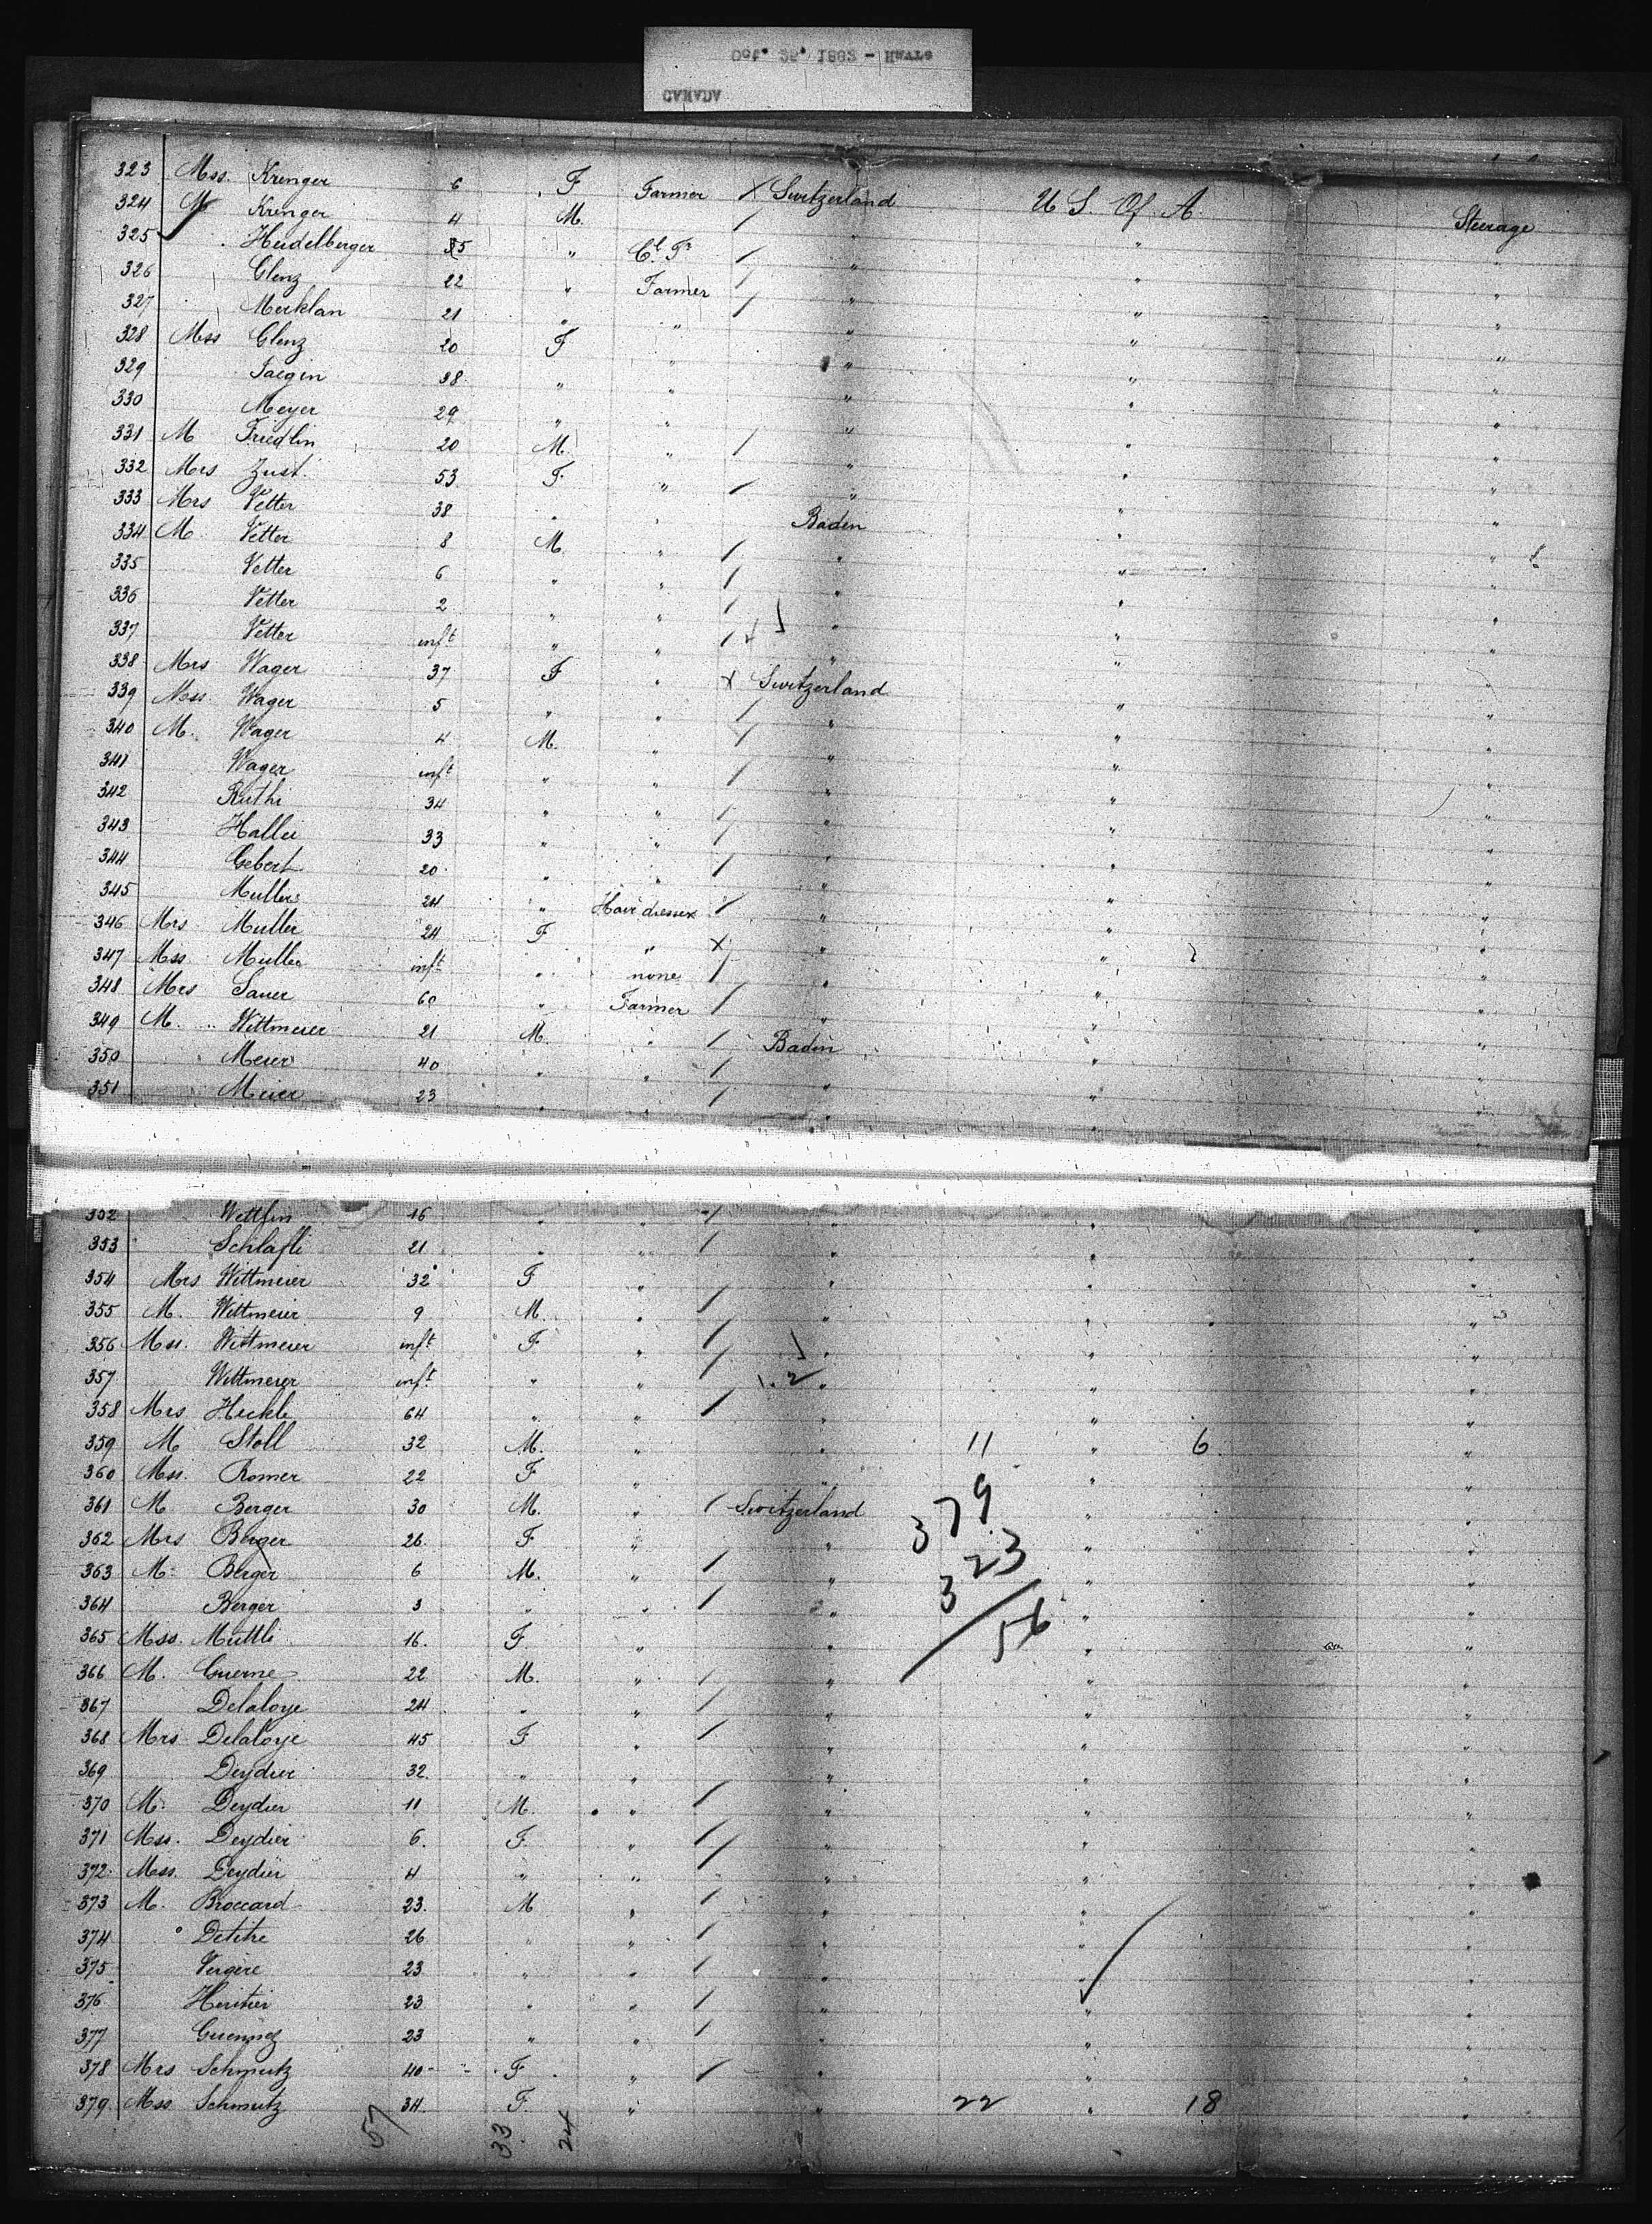 CANADA
323 Mss. Krenger 6 F Farmer / Switzerland U S. Of A. Steerage
324 M Krenger 4 M. / " "
325 Heidelberger 35 " Cl. Fr / " " "
326 Glenz 22 " Farmer / " " "
327 Merklan 21 " " / " " "
328 Mss Glenz 20 F " " " "
329 Jaegin 38 " " " " "
330 Meyer 29 " " " " "
331 M Friedlin 20 M. " / " " "
332 Mrs Zust 53 F. " / " " "
333 Mrs Vetter 38 " " Baden " "
334 M Vetter 8 M. " / " " "
335 Vetter 6 " " / " " "
336 Vetter 2 " " / " " "
337 Vetter inft " " / 4 " " "
338 Mrs Wager 37 F " X Switzerland " "
339 Mss. Wager 5 " " / " " "
340 M. Wager 4 M. " / " " "
341 Wager inft " " / " " "
342 Ruthi 34 " " / " " "
343 Haller 33 " " / " " "
344 Gebert 20 " " / " " "
345 Muller 24 " Hairdresser / " " "
346 Mrs Muller 24 F " X " " "
347 Mss Muller inft " none / " " "
348 Mrs Sauer 60 " Farmer / " " "
349 M. Wittmeier 21 M. " / Baden " "
350 Meier 40 " " / " " "
351 Meier 23 " " / " " "
352 16 " " / " " "
353 Schlafli 21 " " / " " "
354 Mrs Wittmeier 32 F " " " "
355 M. Wittmeier 9 M. " / " " "
356 Mss. Wittmeier inft F " / " " "
357 Wittmeier inft " " / 2 " " "
358 Mrs Heckle 64 " " / " " "
359 M Stoll 32 M. " " 11 " 6 "
360 Mss. Romer 22 F " " " "
361 M Berger 30 M. " / Switzerland " "
379
362 Mrs Berger 26 F " " " "
323
363 M. Berger 6 M. " / " " "
364 Berger 3 " " / " " "
56
365 Mss. Muttli 16. F " " " "
366 M. Guerne 22 M. " / " " "
367 Delaloye 24 " " / " " "
368 Mrs Delaloye 45 F " / " " "
369 Deydier 32. " " " " "
370 M. Deydier 11 M. " / " " "
371 Mss. Deydier 6. F. " / " " "
372 Mss. Deydier 4 " " / " " "
373 M. Broccard 23. M " / " " "
374 26 " " / " " "
375 Vergère 23 " " / " " "
376 Heritier 23 " " / " " "
377 23 " " / " " "
378 Mrs Schmutz 40 F " / " " "
379 Mss Schmutz 34. F. " " 22 " 18 "
57 33 24